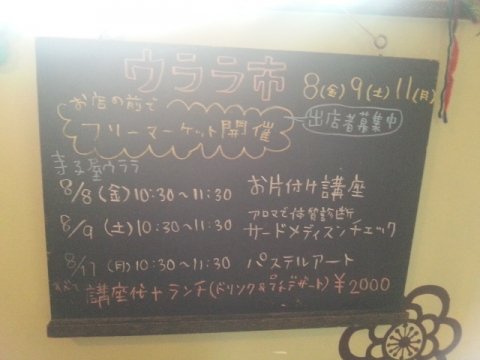 ウララ市 8(金)9(土)11(月)
お店の前で
フリーマーケット開催
出店者募集中
寺子屋ウララ
8/8(金)10:30~11:30 お片付け講座
8/9(土)10:30~11:30 アロマで体質診断
サードメディスンチェック
8/11(月)10:30~11:30 パステルアート
すべて 講座代+ランチ(ドリンク&プチデザート)¥2000